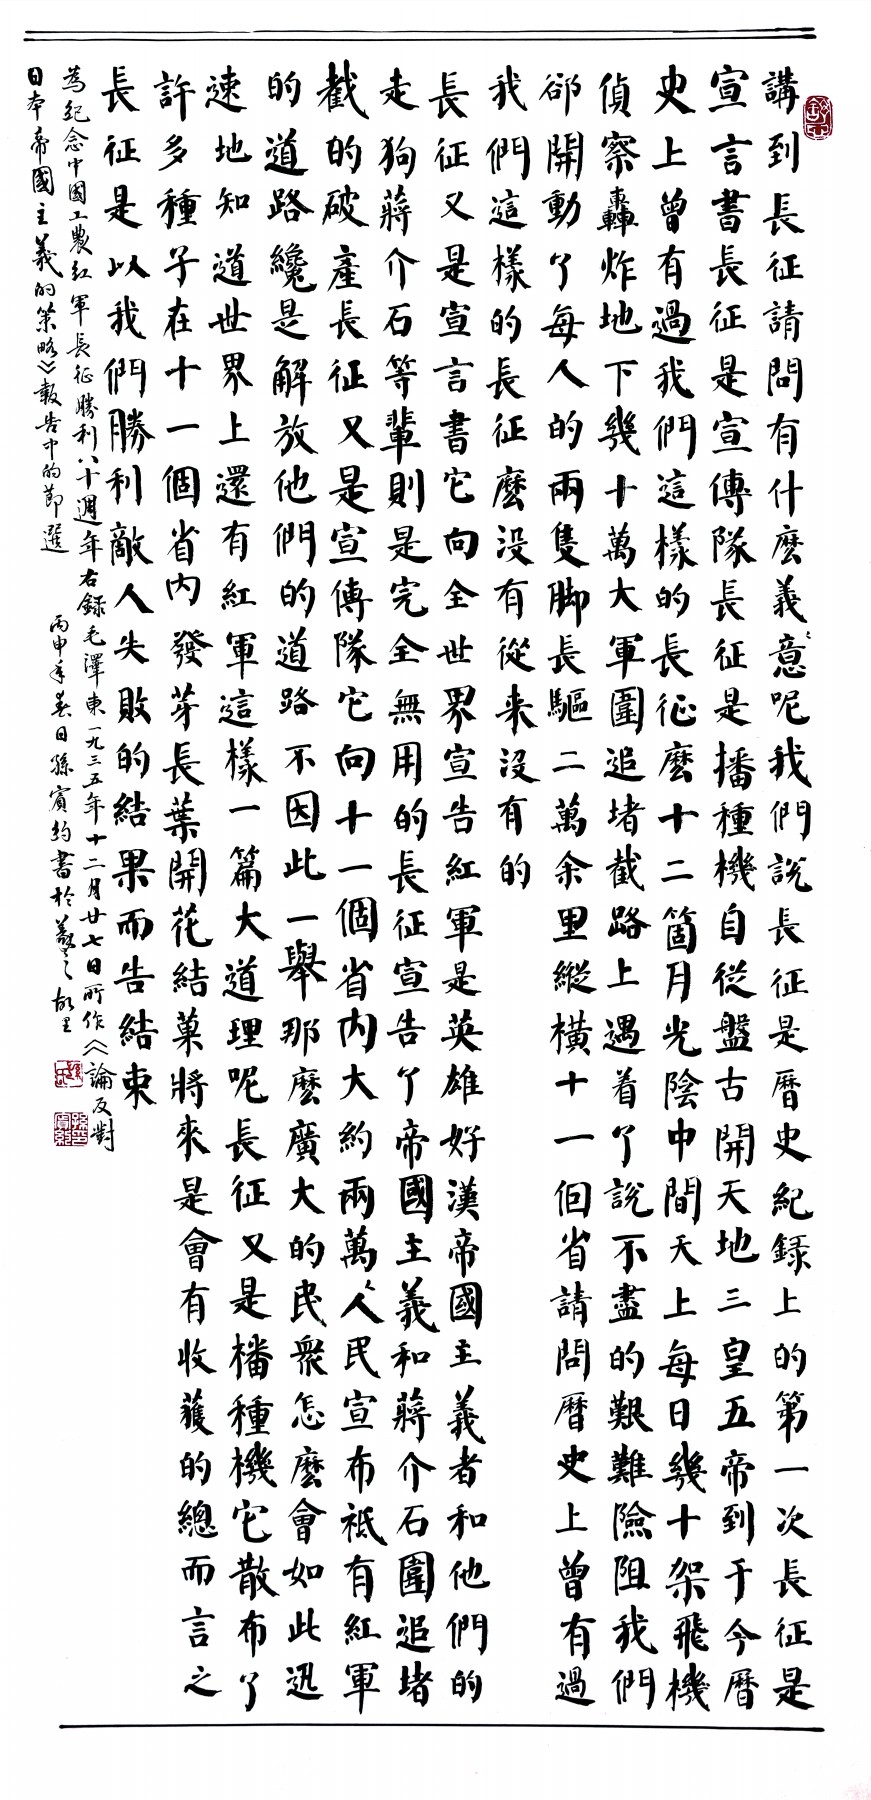 講到長征請問有什麼義意呢我們說長征是曆史紀録上的第一次長征是
宣言書長征是宣傳隊長征是播種機自從盤古開天地三皇五帝到于今曆
史上曾有過我們這樣的長征麼十二箇月光陰中間天上每日幾十架飛機
偵察轟炸地下幾十萬大軍圍追堵截路上遇着了說不盡的艱難險阻我們
却開動了每人的兩隻脚長驅二萬余里縱横十一個省請問曆史上曾有過
我們這樣的長征麼没有從来没有的
長征又是宣言書它向全世界宣告紅軍是英雄好漢帝國主義者和他們的
走狗蔣介石等輩則是完全無用的長征宣告了帝國主義和蔣介石圍追堵
截的破產長征又是宣傳隊它向十一個省内大約兩萬人民宣布祇有紅軍
的道路纔是解放他們的道路不因此一舉那麼廣大的民衆怎麼會如此迅
速地知道世界上還有紅軍這樣一篇大道理呢長征又是播種機它散布了
許多種子在十一個省内發芽長葉開花結菓將來是會有收獲的總而言之
長征是以我們勝利敵人失敗的結果而告結束
為紀念中國工農紅軍長征勝利八十週年右録毛澤東一九三五年十二月廿七日所作《論反對
日本帝國主義的策略》報告中的節選 丙申年春日孫賓約書於羲之故里